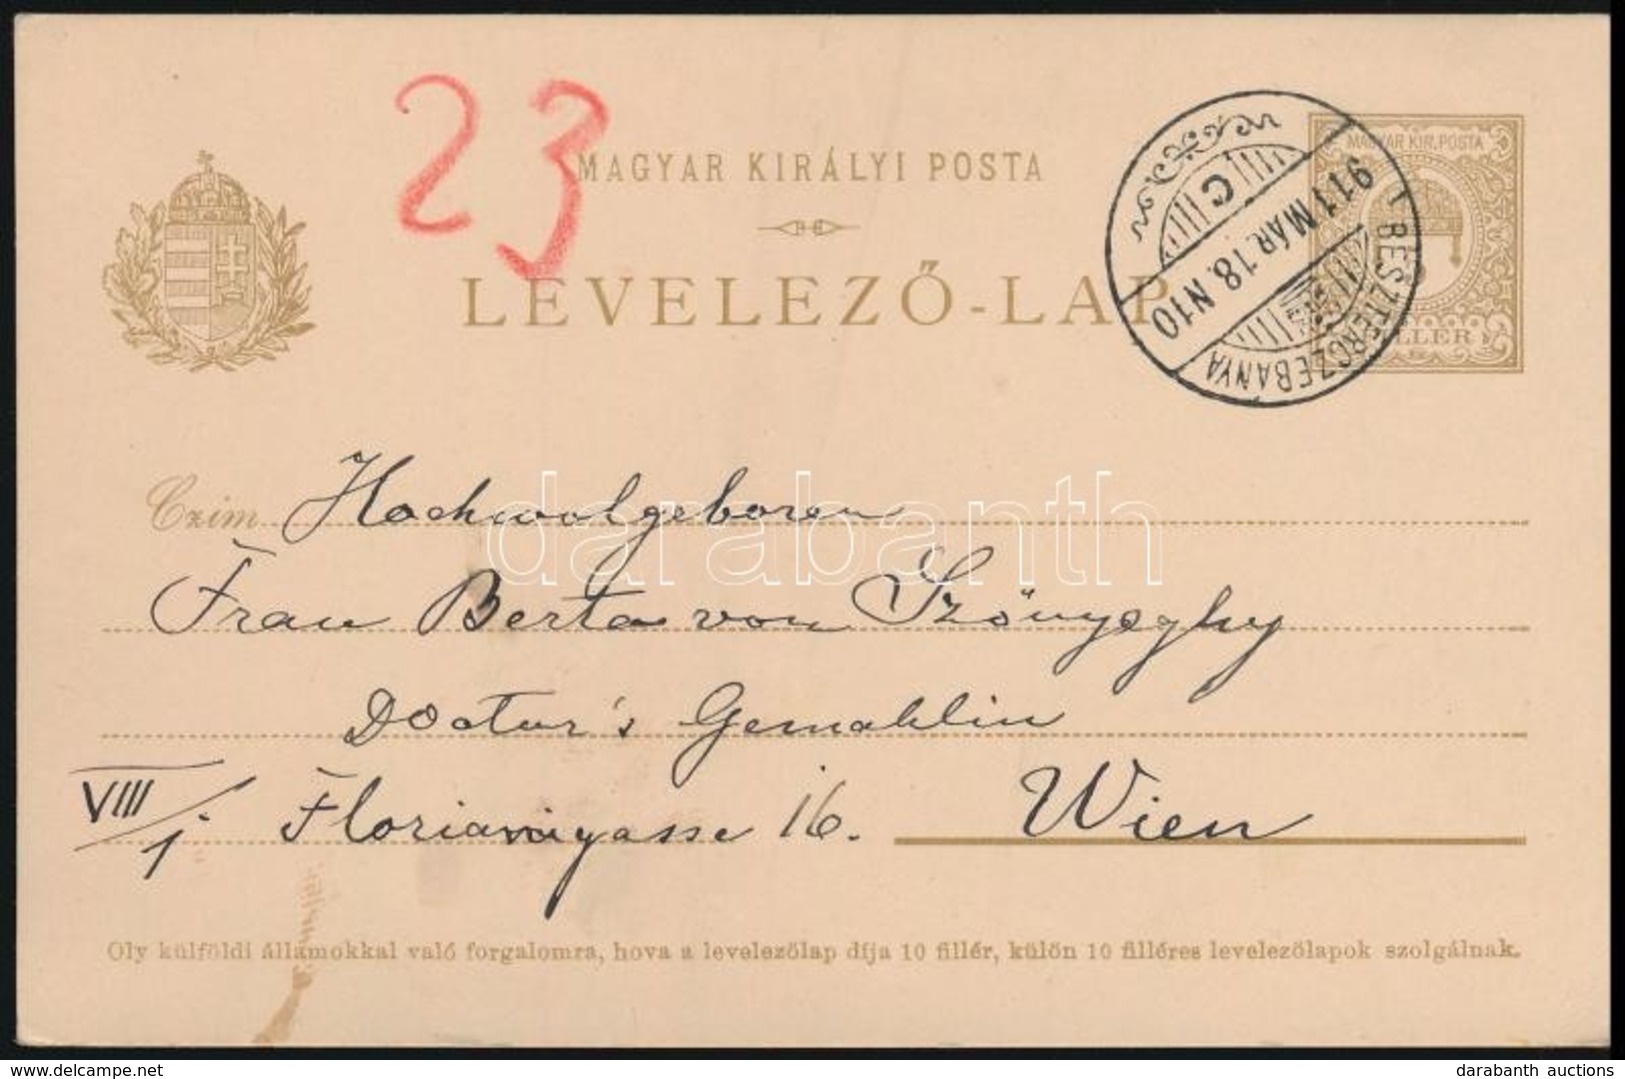 23
MAGYAR KIRÁLYI POSTA
LEVELEZŐ-LAP
MAGYAR KIR. POSTA
FILLÉR
BESZTERCZEBÁNYA
911 MÁR. 18. N10
C
Czim Hochwolgeboren
Frau Berta von Szönyeghy
Doctor's Gemahlin
VIII/1. Floriangasse 16. Wien
Oly külföldi államokkal való forgalomra, hova a levelezölap díja 10 fillér, külön 10 filléres levelezölapok szolgálnak.
darabanth
www.delcampe.net
darabanth auctions